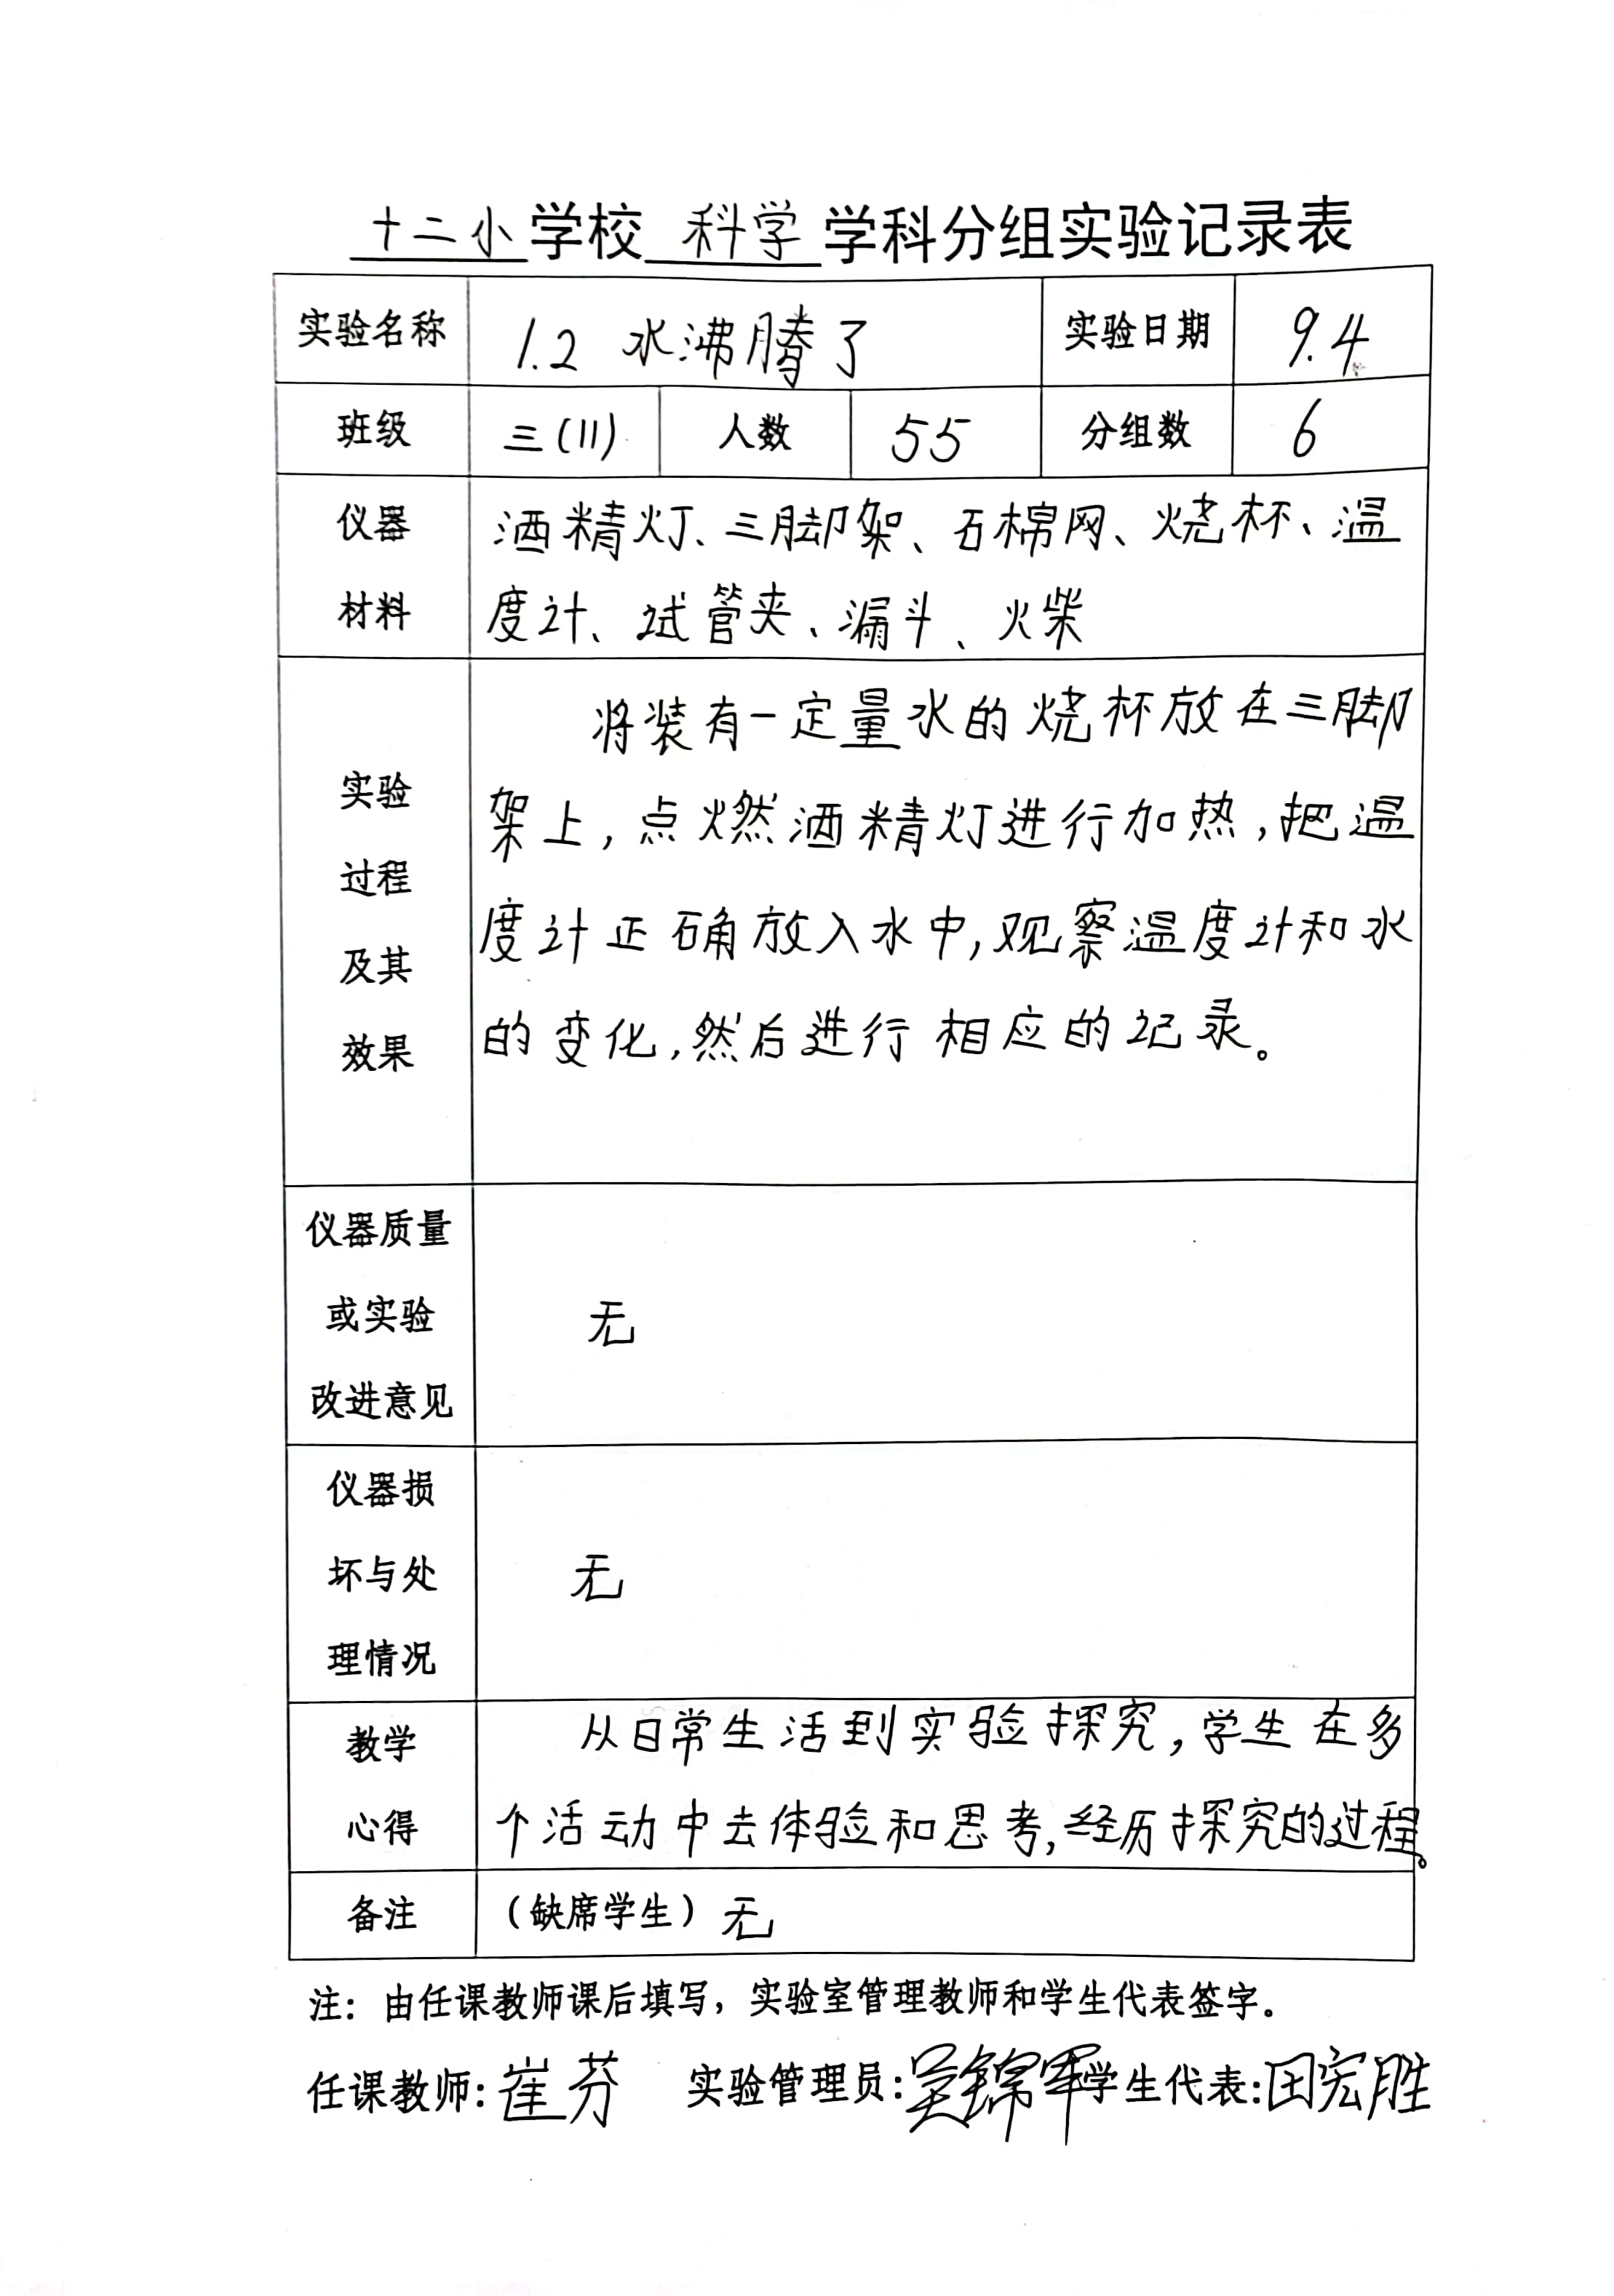 十二小学校 科学 学科分组实验记录表
实验名称 1.2 水沸腾了 实验日期 9.4
班级 三(11) 人数 55 分组数 6
仪器 酒精灯、三脚架、石棉网、烧杯、温
材料 度计、试管夹、漏斗、火柴
将装有一定量水的烧杯放在三脚
实验
架上,点燃酒精灯进行加热,把温
过程
度计正确放入水中,观察温度计和水
及其
的变化,然后进行相应的记录。
效果
仪器质量
或实验 无
改进意见
仪器损
坏与处 无
理情况
教学 从日常生活到实验探究,学生在多
心得 个活动中去体验和思考,经历探究的过程。
备注 (缺席学生) 无
注:由任课教师课后填写,实验室管理教师和学生代表签字。
任课教师:崔芬 实验管理员:吴锦军 学生代表:田宏胜